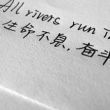 All rivers run in
生命不息，奋斗